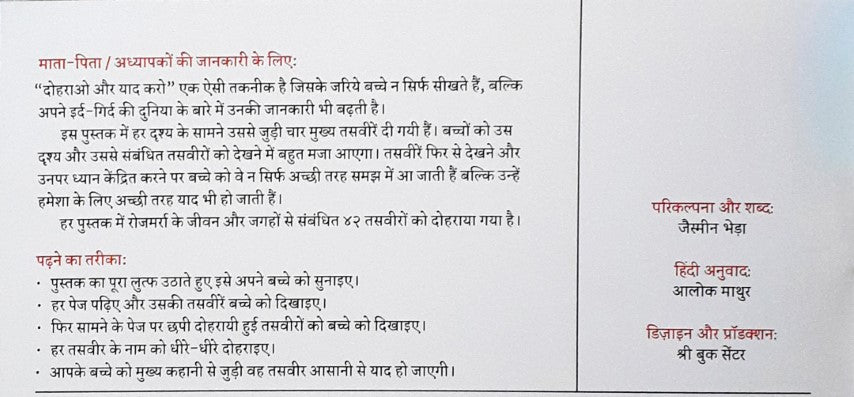 माता-पिता / अध्यापकों की जानकारी के लिए:
“दोहराओ और याद करो” एक ऐसी तकनीक है जिसके जरिये बच्चे न सिर्फ सीखते हैं, बल्कि
अपने इर्द-गिर्द की दुनिया के बारे में उनकी जानकारी भी बढ़ती है।
इस पुस्तक में हर दृश्य के सामने उससे जुड़ी चार मुख्य तसवीरें दी गयी हैं। बच्चों को उस
दृश्य और उससे संबंधित तसवीरों को देखने में बहुत मजा आएगा। तसवीरें फिर से देखने और
उनपर ध्यान केंद्रित करने पर बच्चे को वे न सिर्फ अच्छी तरह समझ में आ जाती हैं बल्कि उन्हें
हमेशा के लिए अच्छी तरह याद भी हो जाती हैं।
हर पुस्तक में रोजमर्रा के जीवन और जगहों से संबंधित ४२ तसवीरों को दोहराया गया है।
पढ़ने का तरीका:
· पुस्तक का पूरा लुत्फ उठाते हुए इसे अपने बच्चे को सुनाइए।
· हर पेज पढ़िए और उसकी तसवीरें बच्चे को दिखाइए।
· फिर सामने के पेज पर छपी दोहरायी हुई तसवीरों को बच्चे को दिखाइए।
· हर तसवीर के नाम को धीरे-धीरे दोहराइए।
· आपके बच्चे को मुख्य कहानी से जुड़ी वह तसवीर आसानी से याद हो जाएगी।
परिकल्पना और शब्द:
जैस्मीन भेड़ा
हिंदी अनुवाद:
आलोक माथुर
डिज़ाइन और प्रॉडक्शन:
श्री बुक सेंटर